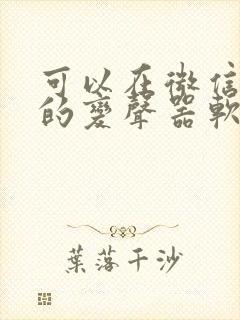 可以在微信
的變聲器軟
葉落千沙